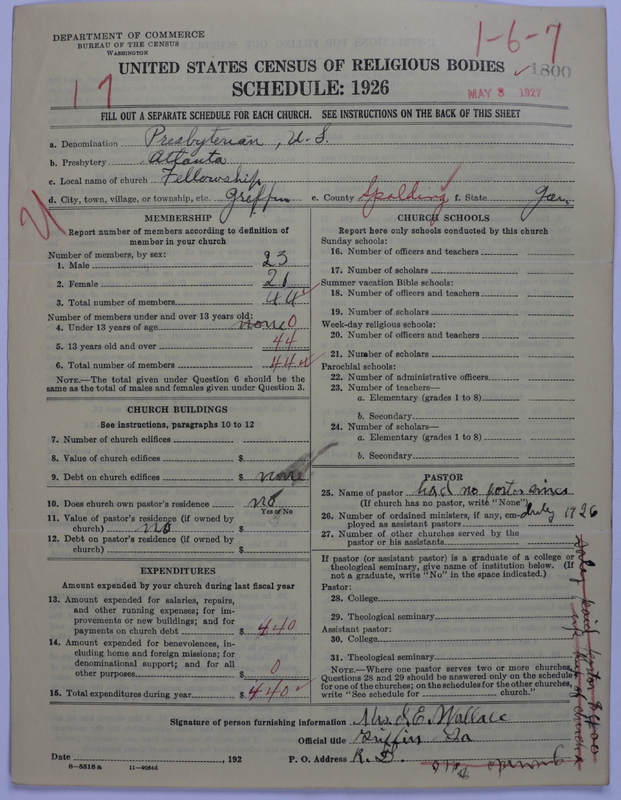 DEPARTMENT OF COMMERCE
BUREAU OF THE CENSUS
WASHINGTON
1-6-7
UNITED STATES CENSUS OF RELIGIOUS BODIES
1800
SCHEDULE: 1926
17
MAY 3 1927
FILL OUT A SEPARATE SCHEDULE FOR EACH CHURCH. SEE INSTRUCTIONS ON THE BACK OF THIS SHEET
a. Denomination Presbyterian, U. S.
b. Presbytery Atlanta
c. Local name of church Fellowship
d. City, town, village, or township, etc. Griffin e. County Spalding f. State Ga.
MEMBERSHIP
Report number of members according to definition of
member in your church
Number of members, by sex:
1. Male 23
2. Female 21
3. Total number of members 44
Number of members under and over 13 years old:
4. Under 13 years of age none 0
5. 13 years old and over 44
6. Total number of members 44
NOTE.—The total given under Question 6 should be the
same as the total of males and females given under Question 3.
CHURCH BUILDINGS
See instructions, paragraphs 10 to 12
7. Number of church edifices
8. Value of church edifices $
9. Debt on church edifices $ none
10. Does church own pastor's residence no
Yes or No
11. Value of pastor's residence (if owned by
church) no $
12. Debt on pastor's residence (if owned by
church) $
EXPENDITURES
Amount expended by your church during last fiscal year
13. Amount expended for salaries, repairs,
and other running expenses; for im-
provements or new buildings; and for
payments on church debt $ 440
14. Amount expended for benevolences, in-
cluding home and foreign missions; for
denominational support; and for all
other purposes $ 0
15. Total expenditures during year $ 440
CHURCH SCHOOLS
Report here only schools conducted by this church
Sunday schools:
16. Number of officers and teachers
17. Number of scholars
Summer vacation Bible schools:
18. Number of officers and teachers
19. Number of scholars
Week-day religious schools:
20. Number of officers and teachers
21. Number of scholars
Parochial schools:
22. Number of administrative officers
23. Number of teachers—
a. Elementary (grades 1 to 8)
b. Secondary
24. Number of scholars—
a. Elementary (grades 1 to 8)
b. Secondary
PASTOR
25. Name of pastor had no pastor since
(If church has no pastor, write "None")
26. Number of ordained ministers, if any, em- July 1926
ployed as assistant pastors
27. Number of other churches served by the
pastor or his assistants
If pastor (or assistant pastor) is a graduate of a college or
theological seminary, give name of institution below. (If
not a graduate, write "No" in the space indicated.)
Pastor:
28. College
29. Theological seminary
Assistant pastor:
30. College
31. Theological seminary
NOTE.—Where one pastor serves two or more churches,
Questions 28 and 29 should be answered only on the schedule
for one of the churches; on the schedules for the other churches,
write "See schedule for church."
Signature of person furnishing information Mrs J. E. Wallace
Official title Griffin Ga
Date , 192 P. O. Address R. D.
8—5518 a 11—9054d